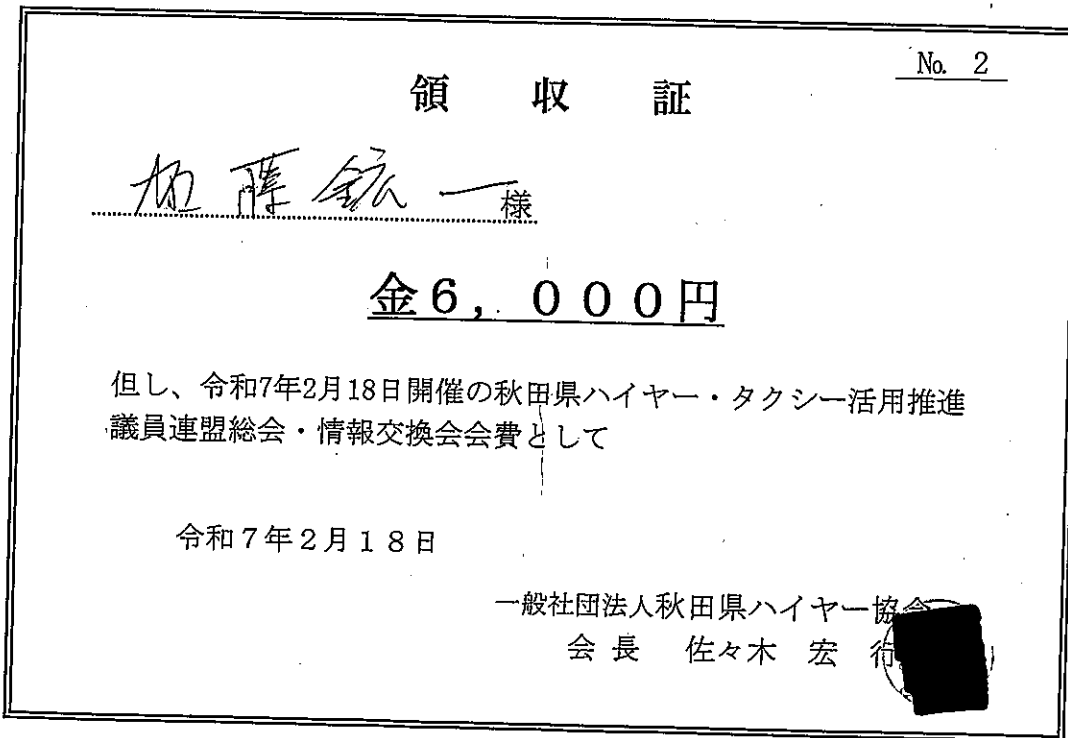 No. 2
領 収 証
加藤鉱一様
金6,000円
但し、令和7年2月18日開催の秋田県ハイヤー・タクシー活用推進
議員連盟総会・情報交換会会費として
令和7年2月18日
一般社団法人秋田県ハイヤー協会
会 長 佐々木 宏 行